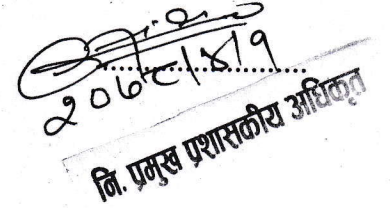 २०७८।४।१
नि. प्रमुख प्रशासकीय अधिकृत